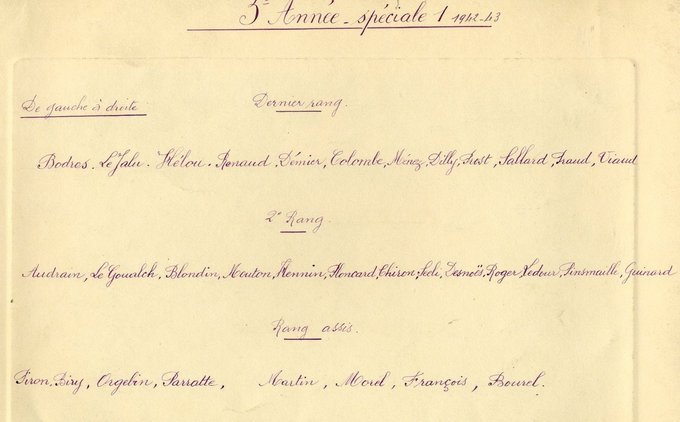 5e Année - spéciale 1 1942-43
De gauche à droite
Dernier rang.
Bodres. Le Jalu. Hélou. Renaud, Démier, Colombe, Ménez, Dilly, Prost, Sallard, Fraud, Viaud
2e Rang.
Audrain, Le Gouelch, Blondin, Mouton, Hennin, Floncard, Chiron, Desnoës, Roger, Ledour, Pinsmaille, Guinard
Rang assis.
Piron, Biry, Orgebin, Parratte, Martin, Morel, François, Bourel.